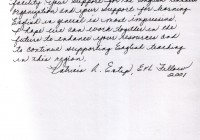 facility. Your support for the English
organization and your support for learning
English in general is most impressive.
I hope we can work together in the
future to enhance your resources and
to continue supporting English teaching
in this region.
Patricia A.
2001